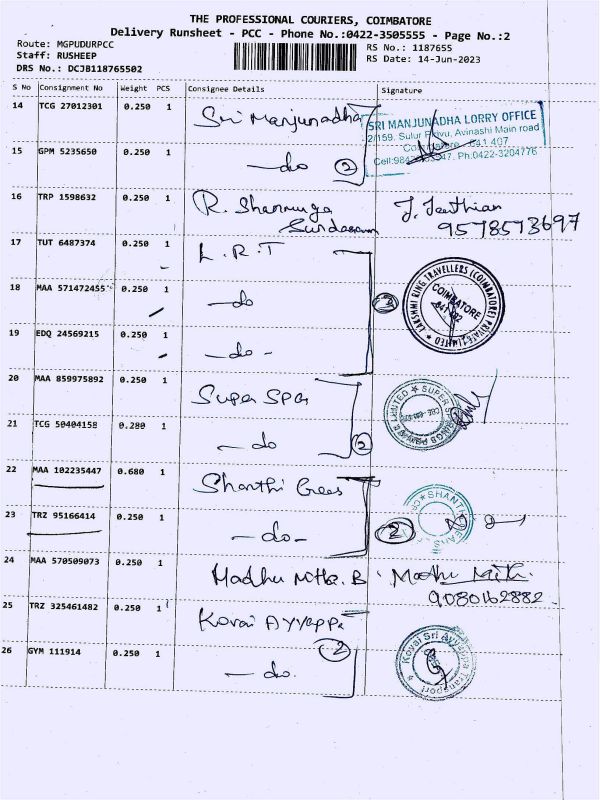 THE PROFESSIONAL COURIERS, COIMBATORE
Delivery Runsheet - PCC - Phone No.:0422-3505555 - Page No.:2
Route: MGPUDURPCC
RS No.: 1187655
Staff: RUSHEEP
RS Date: 14-Jun-2023
DRS No.: DCJB118765502
S No Consignment No Weight PCS Consignee Details Signature
14 TCG 27012301 0.250 1 Sri Manjunadha
SRI MANJUNADHA LORRY OFFICE
2/159, Sulur Pirivu, Avinashi Main road
Coimbatore - 641 407
Ph.0422-3204776
15 GPM 5235650 0.250 1 -do 2
16 TRP 1598632 0.250 1 R. Shanmuga
Sundaram
9578573697
17 TUT 6487374 0.250 1 L.R.T
18 MAA 571472455 0.250 1 -do
LAKSHMI RING TRAVELLERS (COIMBATORE) PRIVATE LIMITED
COIMBATORE
19 EDQ 24569215 0.250 1 -do-
20 MAA 859975892 0.250 1 Super Spas
21 TCG 50404158 0.280 1 -do 2
22 MAA 102235447 0.680 1 Shanthi Gees
SHANTHI
23 TRZ 95166414 0.250 1 -do- 2
24 MAA 570509073 0.250 1 Madhu Mitha. B
9080162882
25 TRZ 325461482 0.250 1 Kovai Ayyappa
Kovai Sri Ayyappa Transport
26 GYM 111914 0.250 1 -do. 2